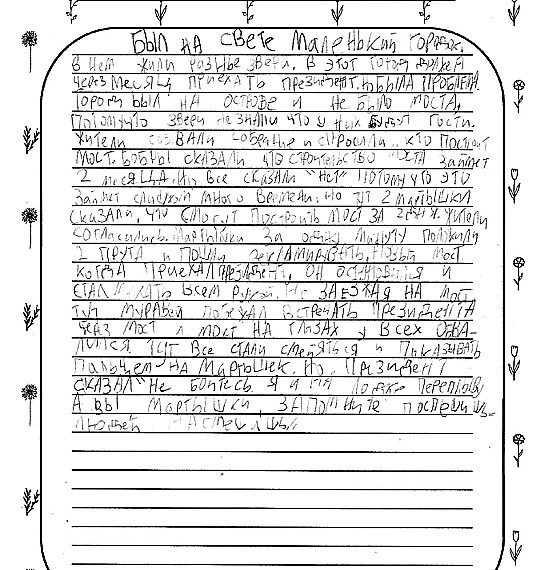 Был на свете маленький городок.
В нем жили разные звери. В этот город должен
через месяц приехать президент. Но была проблема.
Город был на острове и не было моста,
потомучто звери не знали что у них будут гости.
Жители созвали собрание и спросили: кто построит
мост. Бобры сказали что строительство моста займет
2 месяца. Но все сказали "нет" потому что это
займет слишком много времени. Но тут 2 мартышки
сказали, что смогут построить мост за 2 дня. Жители
согласились. Мартышки за одну минуту положили
2 прута и пошли новый мост.
Когда приехал президент, он остановился и
стал махать всем рукой. Не заезжая на мост
тут муравей поехал встречать президента
через мост и мост на глазах у всех обва-
лился. Тут все стали смеяться и показывать
пальцем на мартышек. Но президент
сказал "Не бойтесь я и на лодке переплыву
А вы мартышки запомните поспешишь-
людей насмешишь"